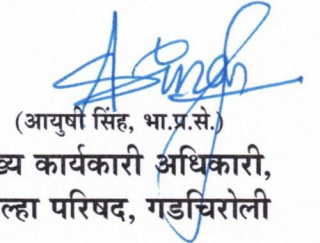 (आयुषी सिंह, भा.प्र.से.)
ख्य कार्यकारी अधिकारी,
ल्हा परिषद, गडचिरोली